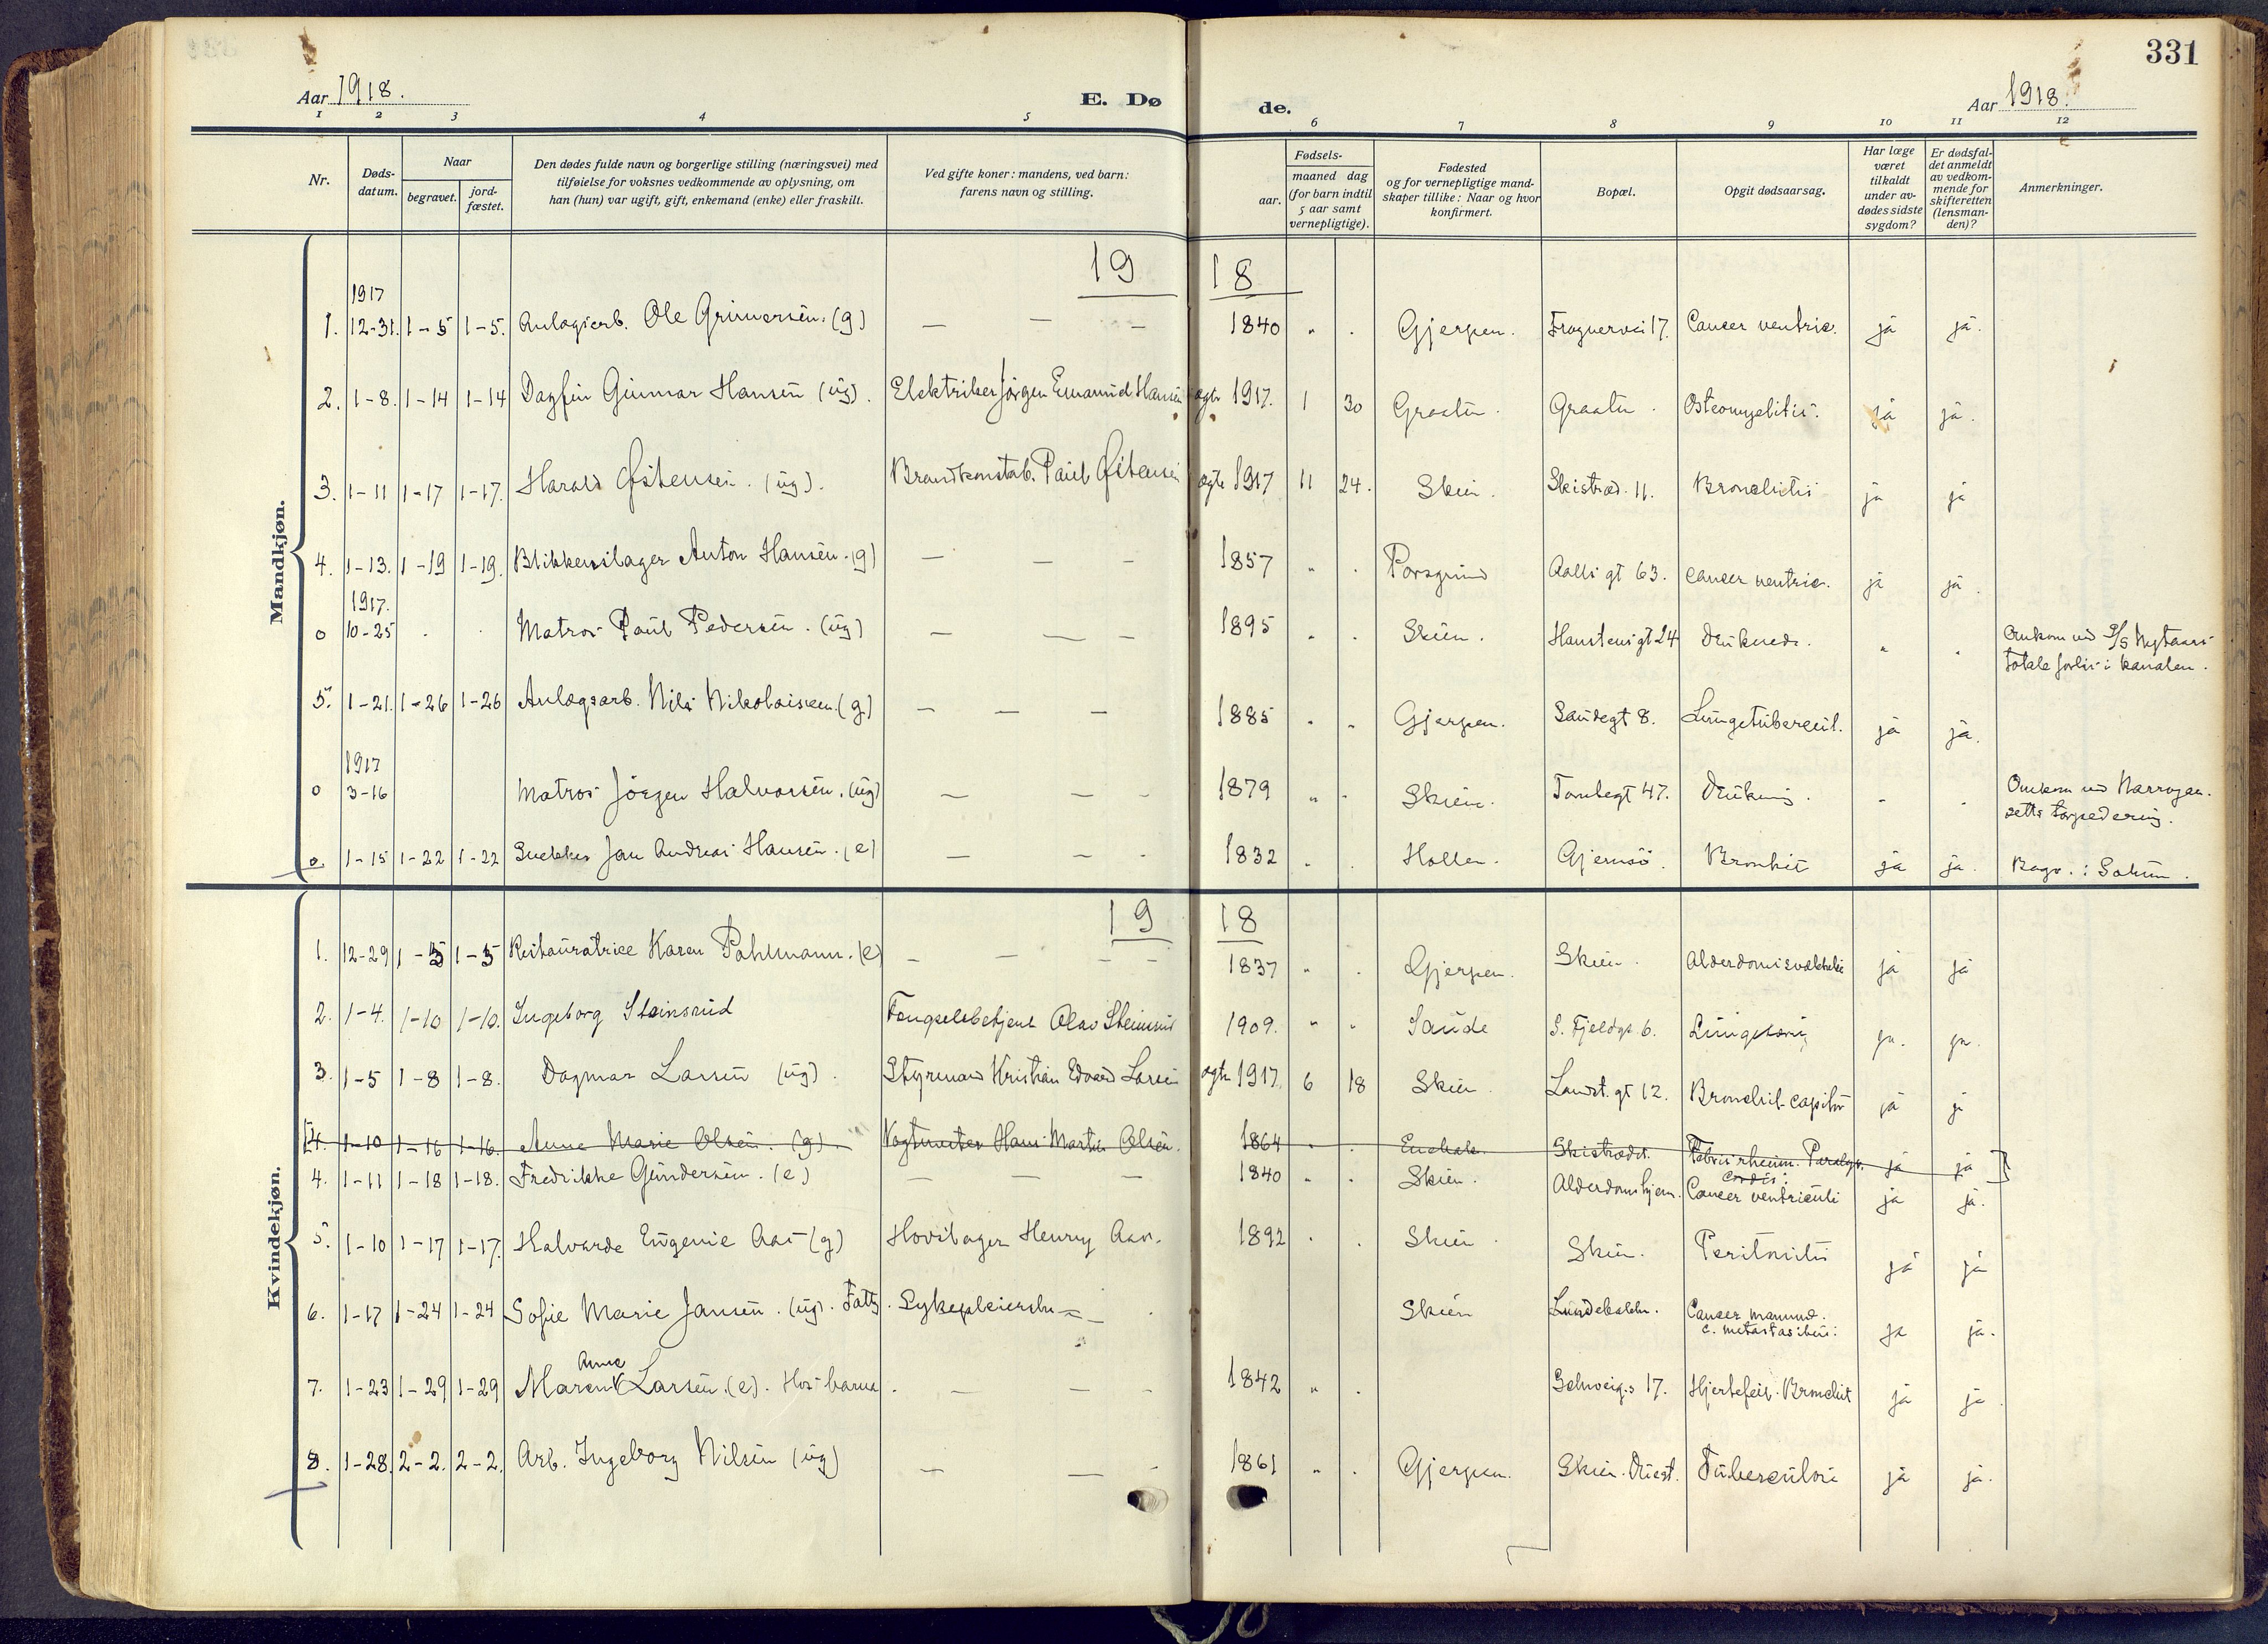 331
Aar 1918.
E. Dø
de.
Aar 1918.
1 2 3 4 5 6 7 8 9 10 11 12
Nr.
Døds-
datum.
Naar
begravet.
jord-
fæstet.
Den dødes fulde navn og borgerlige stilling (næringsvei) med
tilføielse for voksnes vedkommende av oplysning, om
han (hun) var ugift, gift, enkemand (enke) eller fraskilt.
Ved gifte koner: mandens, ved barn:
farens navn og stilling.
Fødsels-
aar.
maaned dag
(for barn indtil
5 aar samt
vernepligtige).
Fødested
og for vernepligtige mand-
skaper tillike: Naar og hvor
konfirmert.
Bopæl.
Opgit dødsaarsag.
Har læge
været
tilkaldt
under av-
dødes sidste
sygdom?
Er dødsfal-
det anmeldt
av vedkom-
mende for
skifteretten
(lensman-
den)?
Anmerkninger.
Mandkjøn.
19 18
1917
1. 12-31. 1-5 1-5. Anlagsarb. Ole Grimersen. (g) — — — 1840 " . Gjerpen. Frognervei 17. Cancer ventric. ja ja.
2. 1-8. 1-14 1-14 Dagfin Gunnar Hansen (ug). Elektriker Jørgen Emanuel Hansen ægte 1917. 1 30 Graaten. Graaten. Osteomyelitis. ja ja.
3. 1-11 1-17 1-17. Harald Østensen. (ug). Brandkonstab. Paul Østensen ægte 1917 11 24. Skien. Skistræd. 11. Bronchitis ja ja
4. 1-13. 1-19 1-19. Blikkenslager Anton Hansen. (g) — — — 1857 " . Porsgrund Aalls gt 63. Cancer ventric. ja ja.
1917.
o 10-25 . . Matros Paul Pedersen. (ug) — — — 1895 " . Skien. Hansteensgt 24 Druknede. " . Omkom ved S/S
totale forlis i kanalen.
5. 1-21. 1-26 1-26 Anlægsarb. Nils Nikolaisen. (g) — — — 1885 " " Gjerpen. Saudegt 8. Lungetubercul. ja ja.
1917
o 3-16 Matros Jörgen Halvorsen. (ug) — — - 1879 " - Skien. Tomtegt 47. Drukning. - . Omkom ved
setts torpedering.
o. 1-15 1-22 1-22 Snekker Jan Andreas Hansen. (e) — - . 1832 . . Hollen. Gjemsö. Bronkit ja ja. Begr. i Solum.
Kvindekjøn.
19 18
1. 12-29 1-5 1-5 Restauratrice Karen Pahlmann. (e) — — — 1837 " . Gjerpen. Skien. Alderdomssvakhed ja ja
2. 1-4. 1-10 1-10. Ingeborg Steinsrud Fængselsbetjent Olav Steinsrud 1909. " " Saude S. Fjeldgt 6. ja. ja.
3. 1-5 1-8 1-8. Dagmar Larsen (ug). Styrmand Kristian Edvard Larsen ægte 1917. 6 18 Skien Landst. gt 12. Bronchit. capillar ja ja
[4. 1-10 1-16 1-16. Anne Marie Olsen. (g) Vagtmester Hans Martin Olsen. 1864 . . Skistrædet. Febris rheum. Paralys. ja ja ]
cordis.
4. 1-11 1-18 1-18. Fredrikke Gundersen. (e) — — — 1840 " . Skien. Alderdomshjem. Cancer ventriculi ja ja.
5. 1-10 1-17 1-17. Halvarde Eugenie Aas (g) Hovslager Henry Aas. 1892 . . Skien. Skien. Peritonitis ja ja
6. 1-17 1-24 1-24 Sofie Marie Jansen. (ug). Fattg. Sykepleierske — — . Skien Cancer mamm.
c. metastasibus. ja ja.
Anne
7. 1-23 1-29 1-29 Maren Larsen. (e). Hos barna. — — - 1842 " . Solveigs 17. Hjertefeil. Bronchit ja ja
8. 1-28. 2-2. 2-2. Arb. Ingeborg Nilsen (ug) — — - 1861 " . Gjerpen. Skien. Tuberculose ja ja.